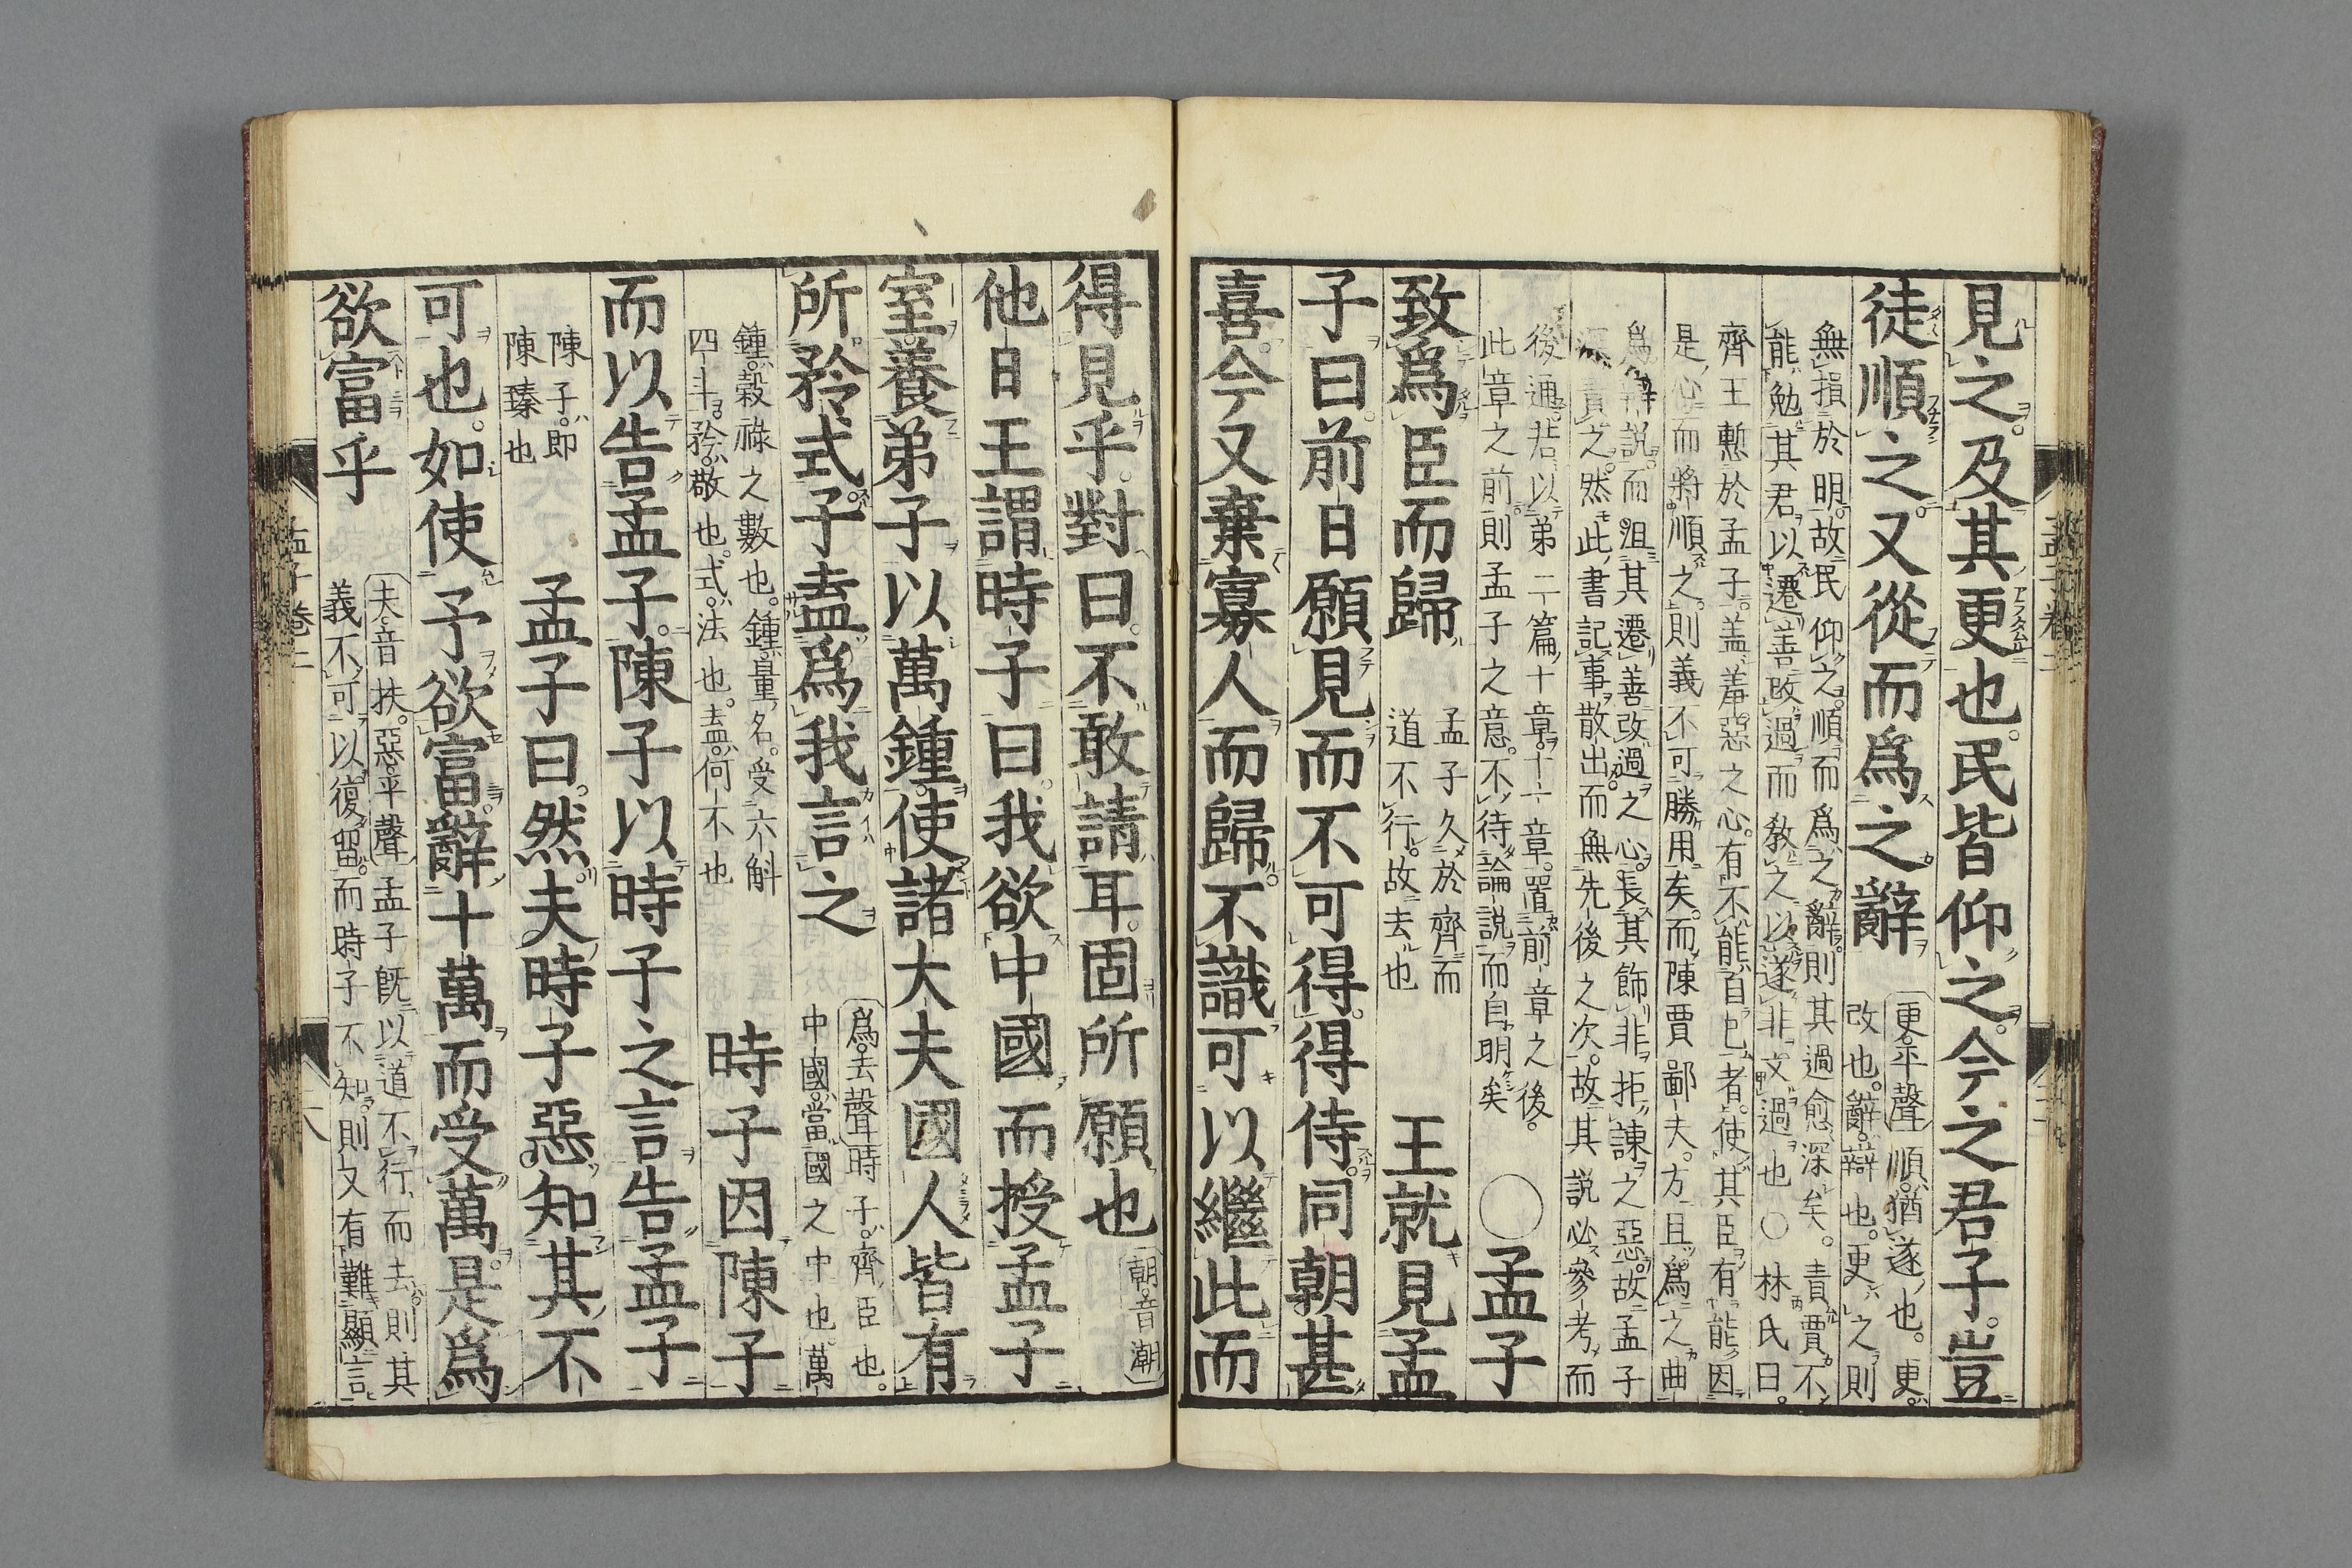 見之。及其更也。民皆仰之。今之君子。豈
徒順之。又從而爲之辭
更。平聲 順。猶遂也。更。
改也。辭。辯也。更之則
無損於明。故民仰之。順而爲之辭。則其過愈深矣。責賈不
能勉其君以遷善改過。而敎之以遂非文過也 ○ 林氏曰。
齊王慙於孟子。蓋羞惡之心。有不能自已者。使其臣有能因
是心而將順之。則義不可勝用矣。而陳賈鄙夫。方且爲之曲
爲辯說。而沮其遷善改過之心。長其飾非拒諫之惡。故孟子
深責之。然此書記事散出。而無先後之次。故其說必參考而
後通。若以第二篇十章十一章。置前章之後。
此章之前。則孟子之意。不待論說而自明矣
○ 孟子
致爲臣而歸
孟子久於齊而
道不行。故去也
王就見孟
子曰。前日願見而不可得。得侍。同朝甚
喜。今又棄寡人而歸。不識可以繼此而
得見乎。對曰。不敢請耳。固所願也
朝。音潮
他日王謂時子曰。我欲中國而授孟子
室。養弟子以萬鍾。使諸大夫國人皆有
所矜式。子盍爲我言之
爲。去聲 時子。齊臣也。
中國。當國之中也。萬
鍾。穀祿之數也。鍾。量名。受六斛
四斗。矜。敬也。式。法也。盍。何不也
時子因陳子
而以告孟子。陳子以時子之言告孟子
陳子。卽
陳臻也
孟子曰。然。夫時子惡知其不
可也。如使予欲富。辭十萬而受萬。是爲
欲富乎
夫。音扶。惡。平聲 孟子旣以道不行而去。則其
義不可以復留。而時子不知。則又有難顯言
孟子卷二